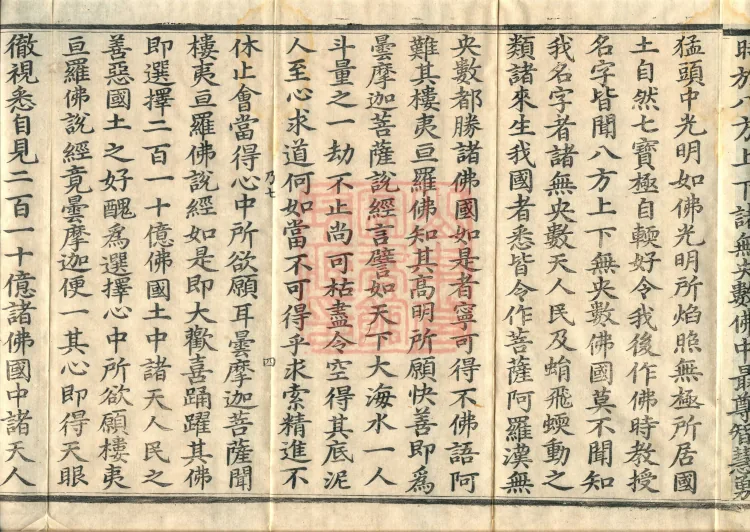 時方八方上下諸無央數佛中最尊智慧勇
猛頭中光明如佛光明所焰照無極所居國
土自然七寶極自軟好令我後作佛時教授
名字皆聞八方上下無央數佛國莫不聞知
我名字者諸無央數天人民及蜎飛蝡動之
類諸來生我國者悉皆令作菩薩阿羅漢無
央數都勝諸佛國如是者寧可得不佛語阿
難其樓夷亘羅佛知其高明所願快善即爲
曇摩迦菩薩說經言譬如天下大海水一人
斗量之一劫不止尚可枯盡令空得其底泥
人至心求道何如當不可得乎求索精進不
乃七
四
休止會當得心中所欲願耳曇摩迦菩薩聞
樓夷亘羅佛說經如是即大歡喜踊躍其佛
即選擇二百一十億佛國土中諸天人民之
善惡國土之好醜爲選擇心中所欲願樓夷
亘羅佛說經竟曇摩迦便一其心即得天眼
徹視悉自見二百一十億諸佛國中諸天人